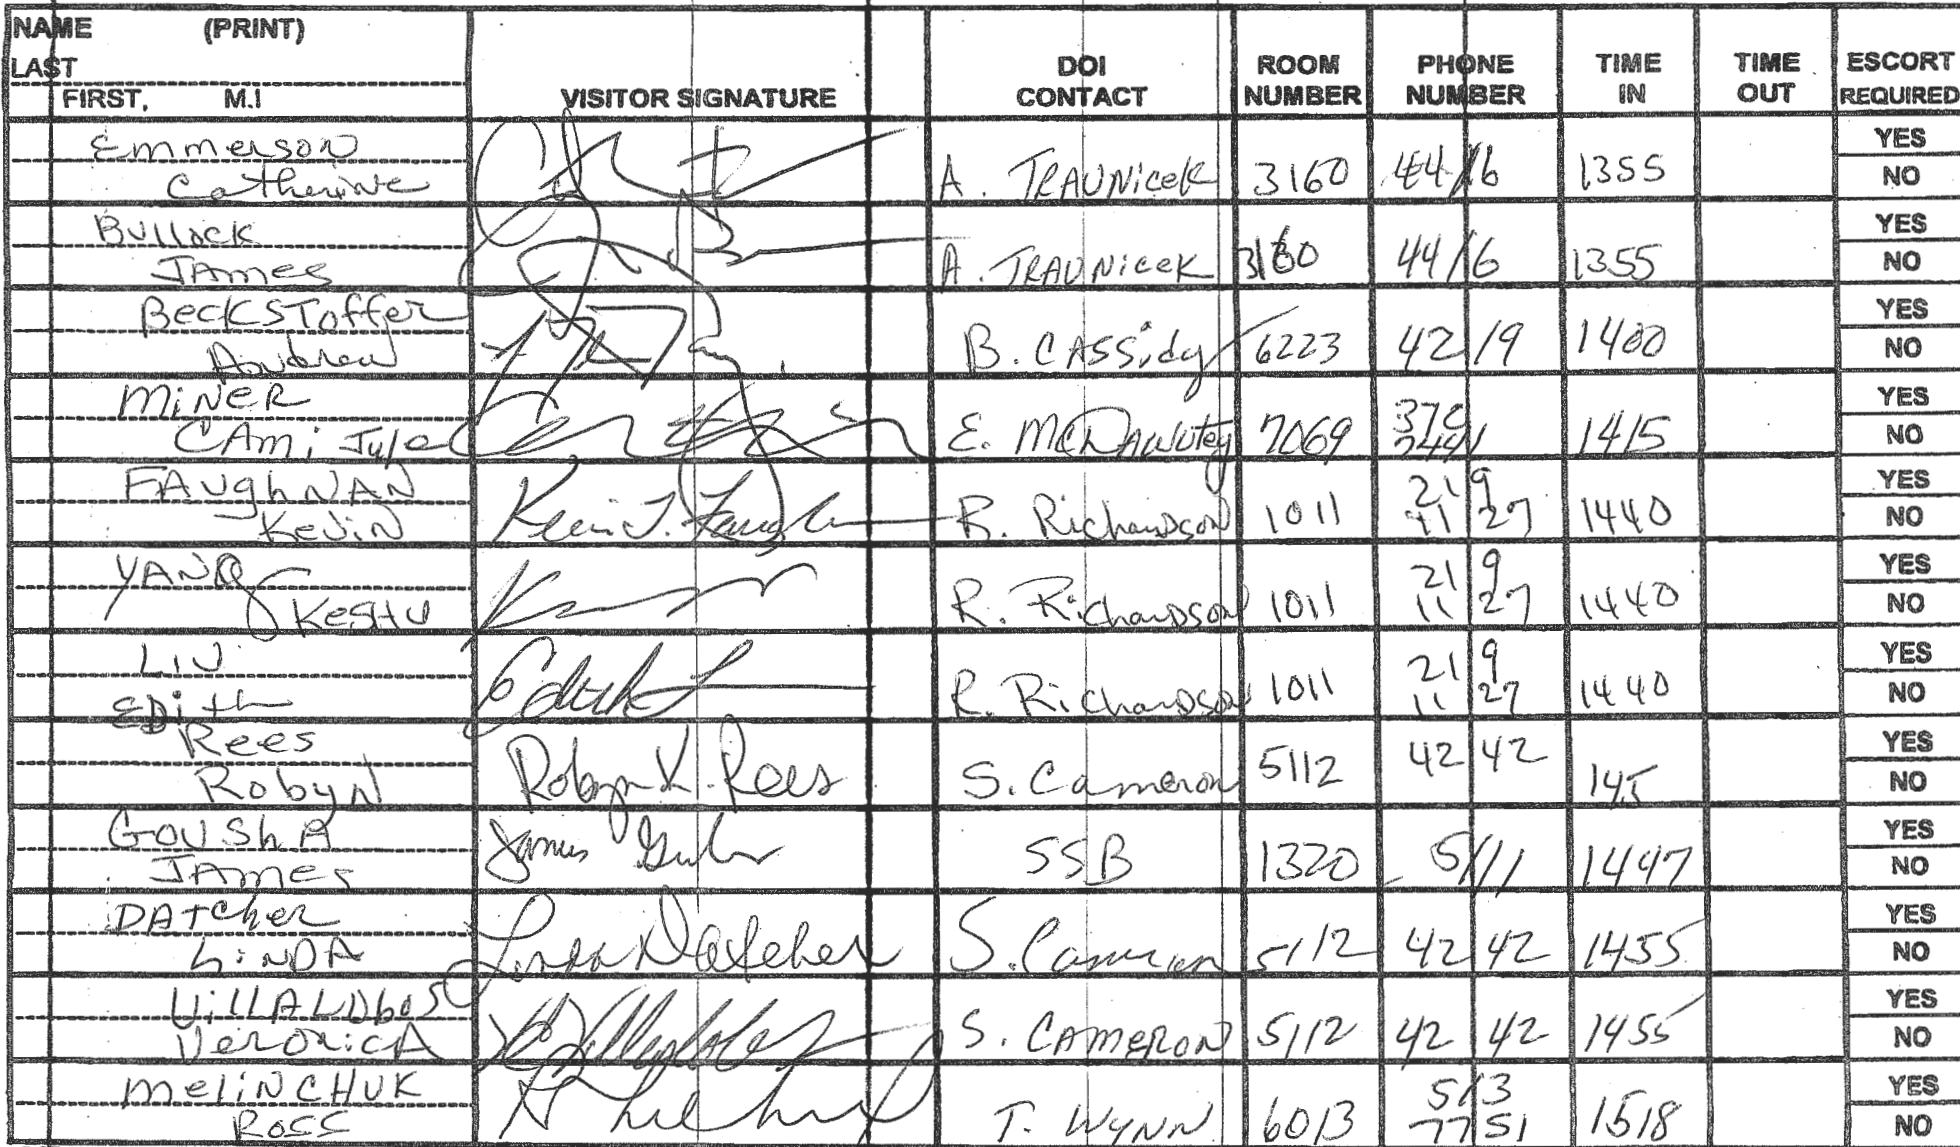 NAME (PRINT)
LAST
FIRST, M.I
VISITOR SIGNATURE
DOI CONTACT
ROOM NUMBER
PHONE NUMBER
TIME IN
TIME OUT
ESCORT REQUIRED
Emmerson
Catherine
A. TRAUNicek 3160 4416 1355 YES NO
Bullock
JAmes
A. TRAUNicek 3160 4416 1355 YES NO
BeckSToffer
Andrew
B. CASSidy 6223 4219 1400 YES NO
MiNeR
CAmi
E. 7069 1415 YES NO
FAughNAN
KeviN
Kevin J. Faughn R. Richardson 1011 219 1127 1440 YES NO
YANG
KeSHU
R. Richardson 1011 219 1127 1440 YES NO
LiU
EDith
Edith L R. Richardson 1011 219 1127 1440 YES NO
Rees
RobyN
Robyn K. Rees S. Cameron 5112 42 42 145 YES NO
GOUShA
JAmes
James SSB 1320 5111 1447 YES NO
DATcher
LiNDA
Linda Datcher S. Cameron 5112 42 42 1455 YES NO
VillALObos
VeroNicA
S. CAMERON 5112 42 42 1455 YES NO
MeliNCHUK
Ross
T. WYNN 6013 513 7751 1518 YES NO